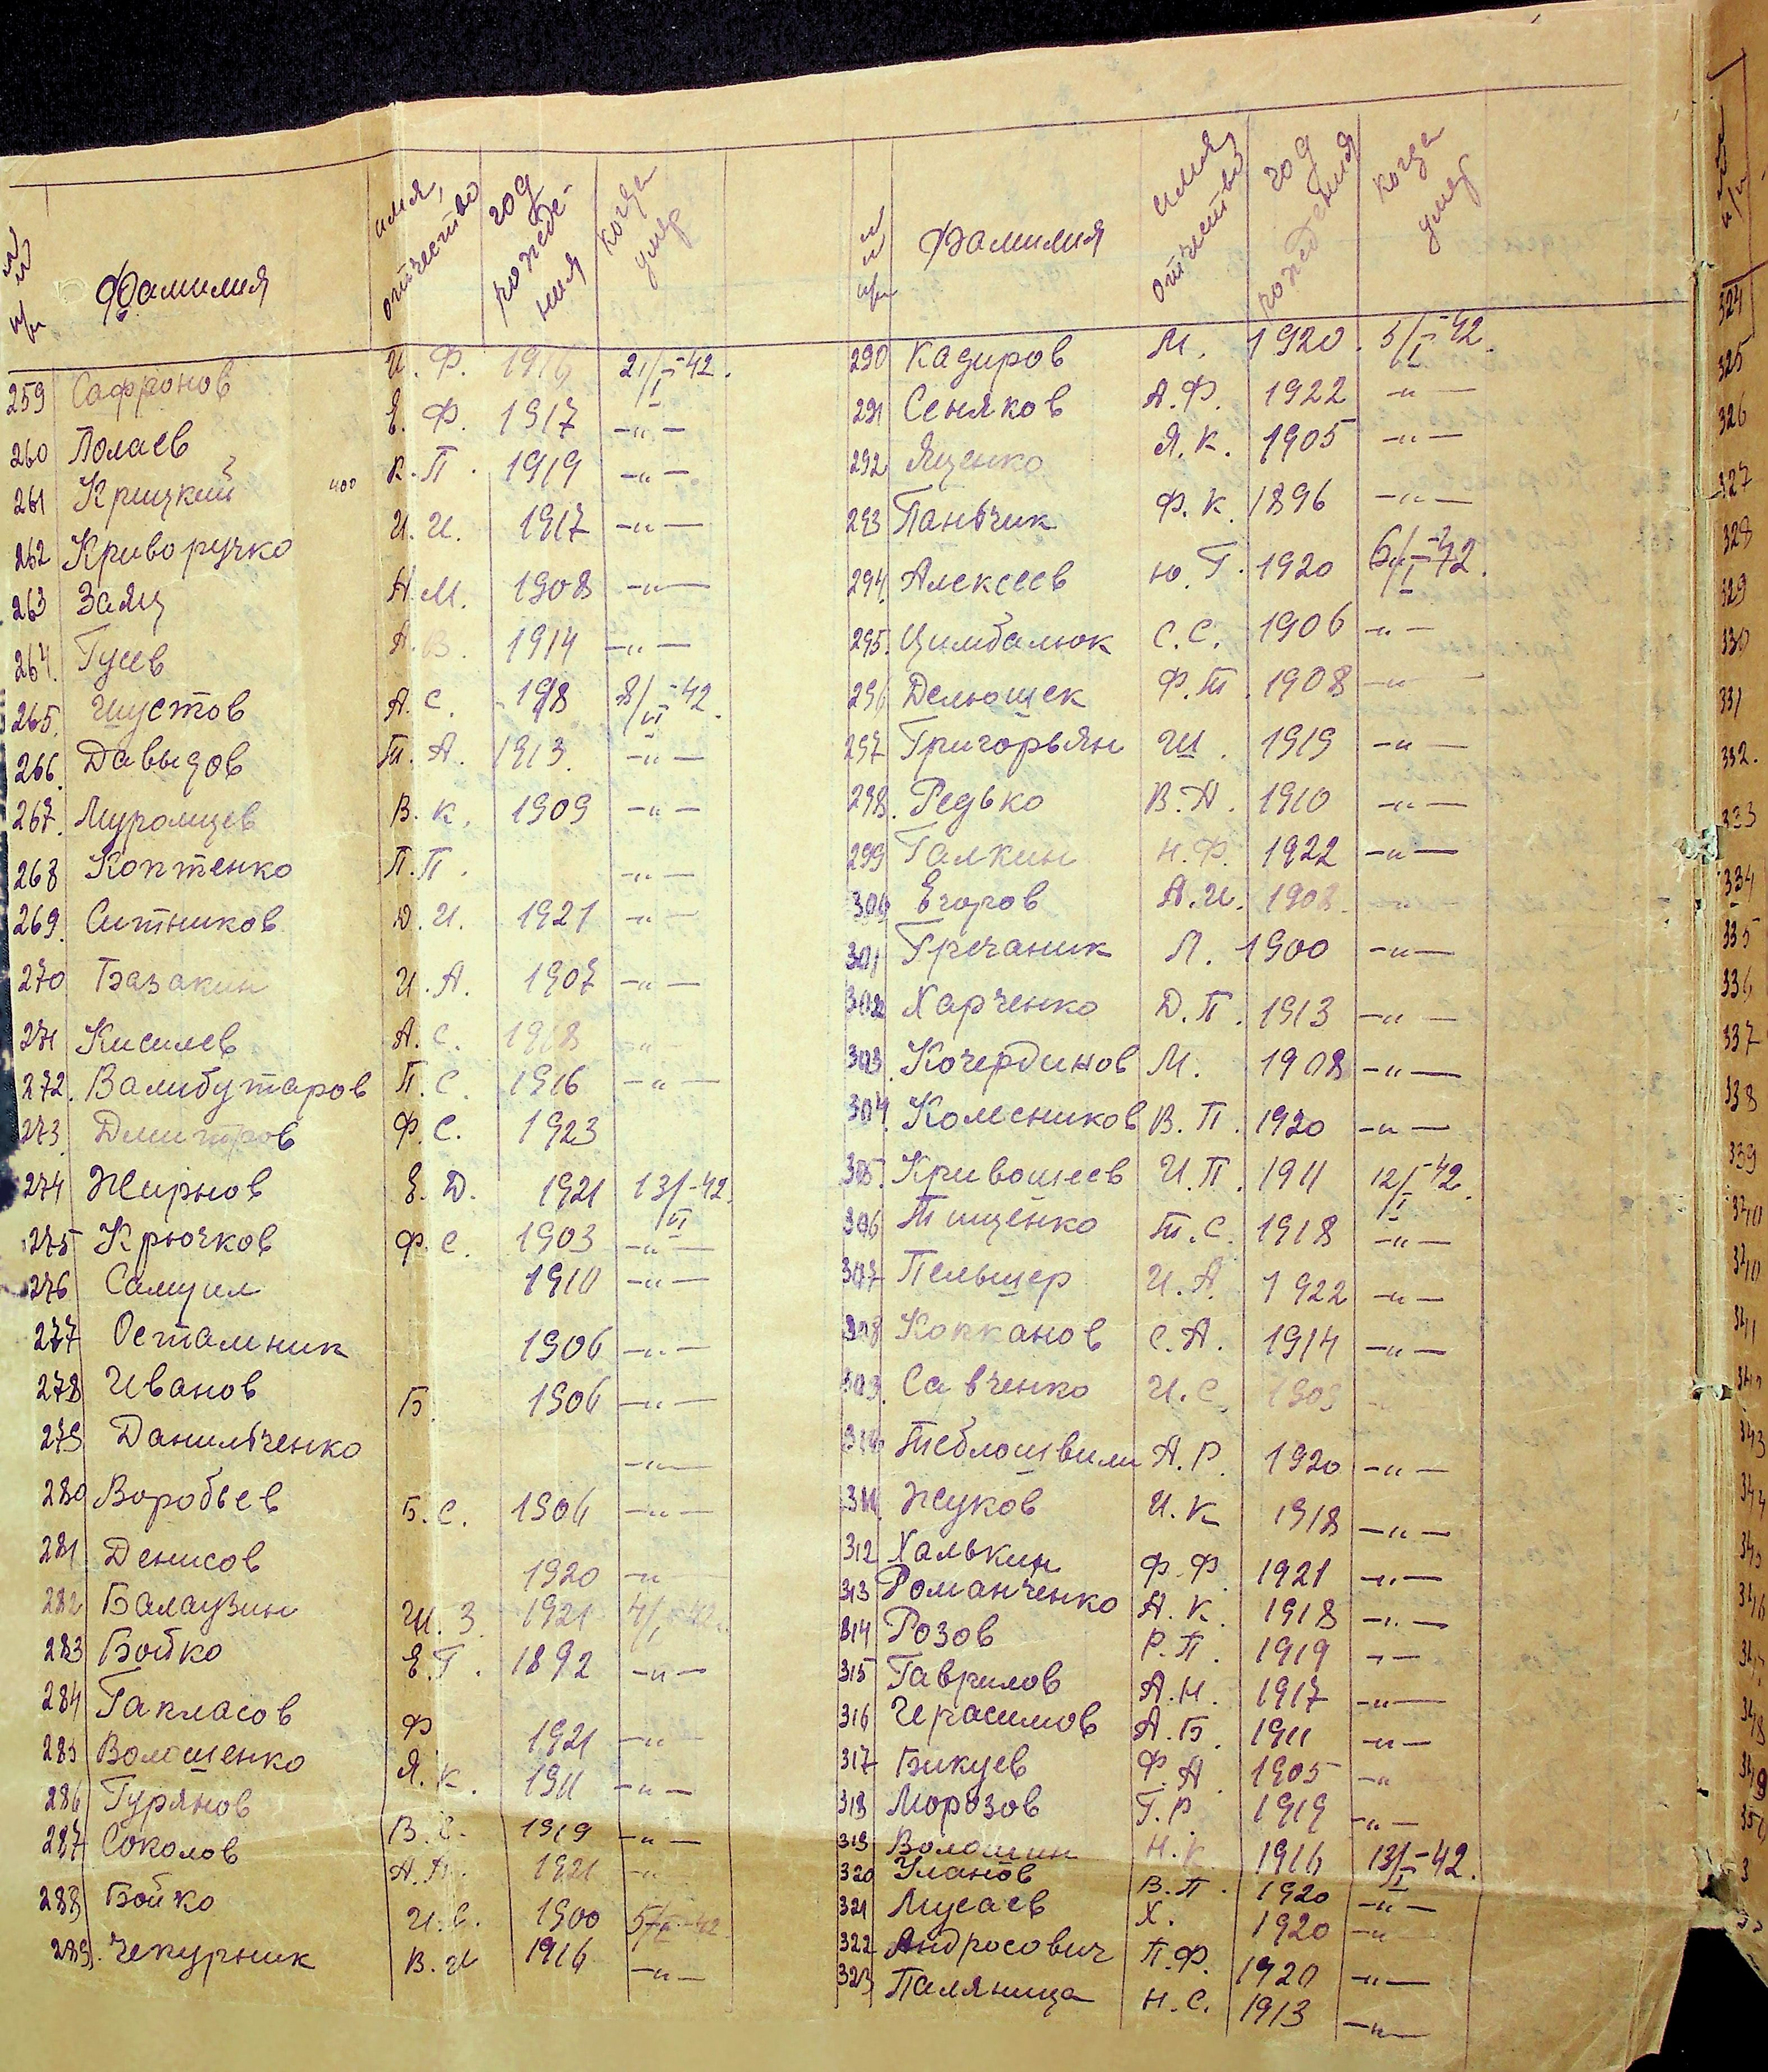 №№ п/п Фамилия имя, отчество год рождения когда умер
259 Сафронов И. Ф. 1916 21/I-42.
260 Полаев Е. Ф. 1917 -"-
261 Крицкий К. П. 1919 -"-
262 Криворучко И. И. 1917 -"-
263 Заяц Н. М. 1908 -"-
264. Гусев А. В. 1914 -"-
265. Шустов А. С. 1918 8/II-42.
266. Давыдов Т. А. 1913. -"-
267. Муромцев В. К. 1909 -"-
268 Коптенко П. П. -"-
269. Ситников Д. И. 1921 -"-
270 Базакин И. А. 1907 -"-
271 Киселев А. С. 1918 -"-
272. Валибутаров П. С. 1916 -"-
273. Дмитров Ф. С. 1923
274 Жирнов Е. Д. 1921 13/II-42.
275 Крючков Ф. С. 1903 -"-
276 Самуил 1910 -"-
277 Остальник 1906 -"-
278 Иванов Б. 1906 -"-
279 Данильченко -"-
280 Воробьев Б. С. 1906 -"-
281 Денисов 1920 -"-
282 Балаузин Ш. З. 1921 4/I-42.
283 Бойко Е. Г. 1892 -"-
284 Гапласов Ф 1921 -"-
285 Волошенко Я. К. 1911 -"-
286 Гурянов В. С. 1919 -"-
287 Соколов 1921 -"-
288 Бойко И. С. 1900 -42
289. Чепурник В. И 1916 -"-
№№ п/п Фамилия имя, отчество год рождения когда умер
290 Кадиров М. 1920. 5/I-42.
291 Сеняков А. Ф. 1922 -"-
292 Яценко Я. К. 1905 -"-
293 Паньчик Ф. К. 1896 -"-
294. Алексеев Ю. Г. 1920 6/I-42.
295. Цимбалюк С. С. 1906 -"-
296 Делюшек Ф. Т. 1908 -"-
297 Григорьян Ш. 1919 -"-
298. Редько В. А. 1910 -"-
299 Галкин Н. Ф. 1922 -"-
300 Егоров А. И. 1908. -"-
301 Гречаник Л. 1900 -"-
302 Харченко Д. П. 1913 -"-
303. Кочердинов М. 1908 -"-
304. Колесников В. П. 1920 -"-
305. Кривошеев И. П. 1911 12/I-42.
306 Тищенко Т. С. 1918 -"-
307 Пельшер И. А. 1922 -"-
308 Копканов С. А. 1914 -"-
309. Савченко И. С. 1909 -"-
310 Теблошвили А. Р. 1920 -"-
311. Жуков И. К 1918 -"-
312 Халькин Ф. Ф. 1921 -"-
313 Романченко А. К. 1918 -"-
314 Розов Р. П. 1919 -"-
315 Гаврилов А. Н. 1917 -"-
316 Черасимов А. Б. 1911 -"-
317 Бикуев Ф. А. 1905 -"
318 Морозов Г. Р. 1919 -"-
319 Волошин Н. К. 1916 13/I-42.
320 Уланов В. П. 1920 -"-
321 Мусаев Х. 1920 -"
322 Андросович П. Ф. 1920 -"-
323 Паляница Н. С. 1913 -"-
п/п
324
325
326
327
328
329
330
331
332.
333
334
335
336
337
338
339
340
340
341
342
343
344
345
346
347
348
349
350